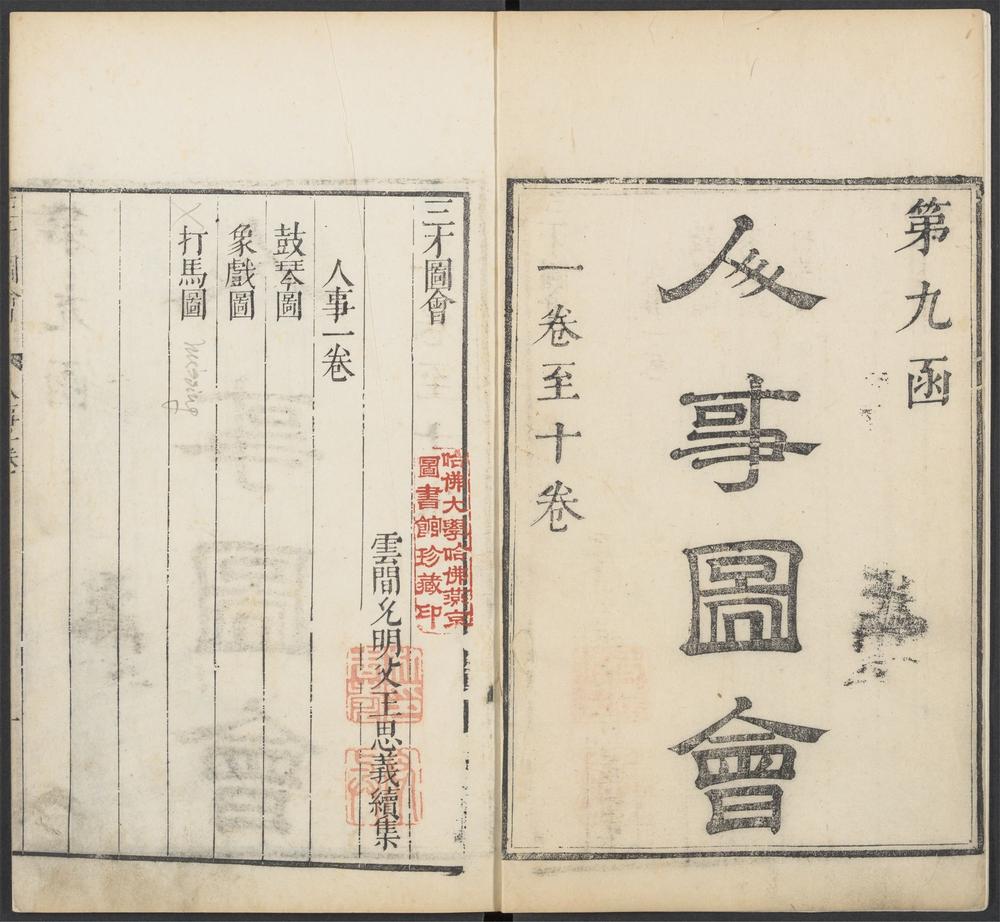 第九函
人事圖會
一卷至十卷
三才圖會
雲間允明父王思義續集
人事一卷
鼓琴圖
象戲圖
打馬圖
missing
哈佛大學哈佛燕京
圖書館珍藏印